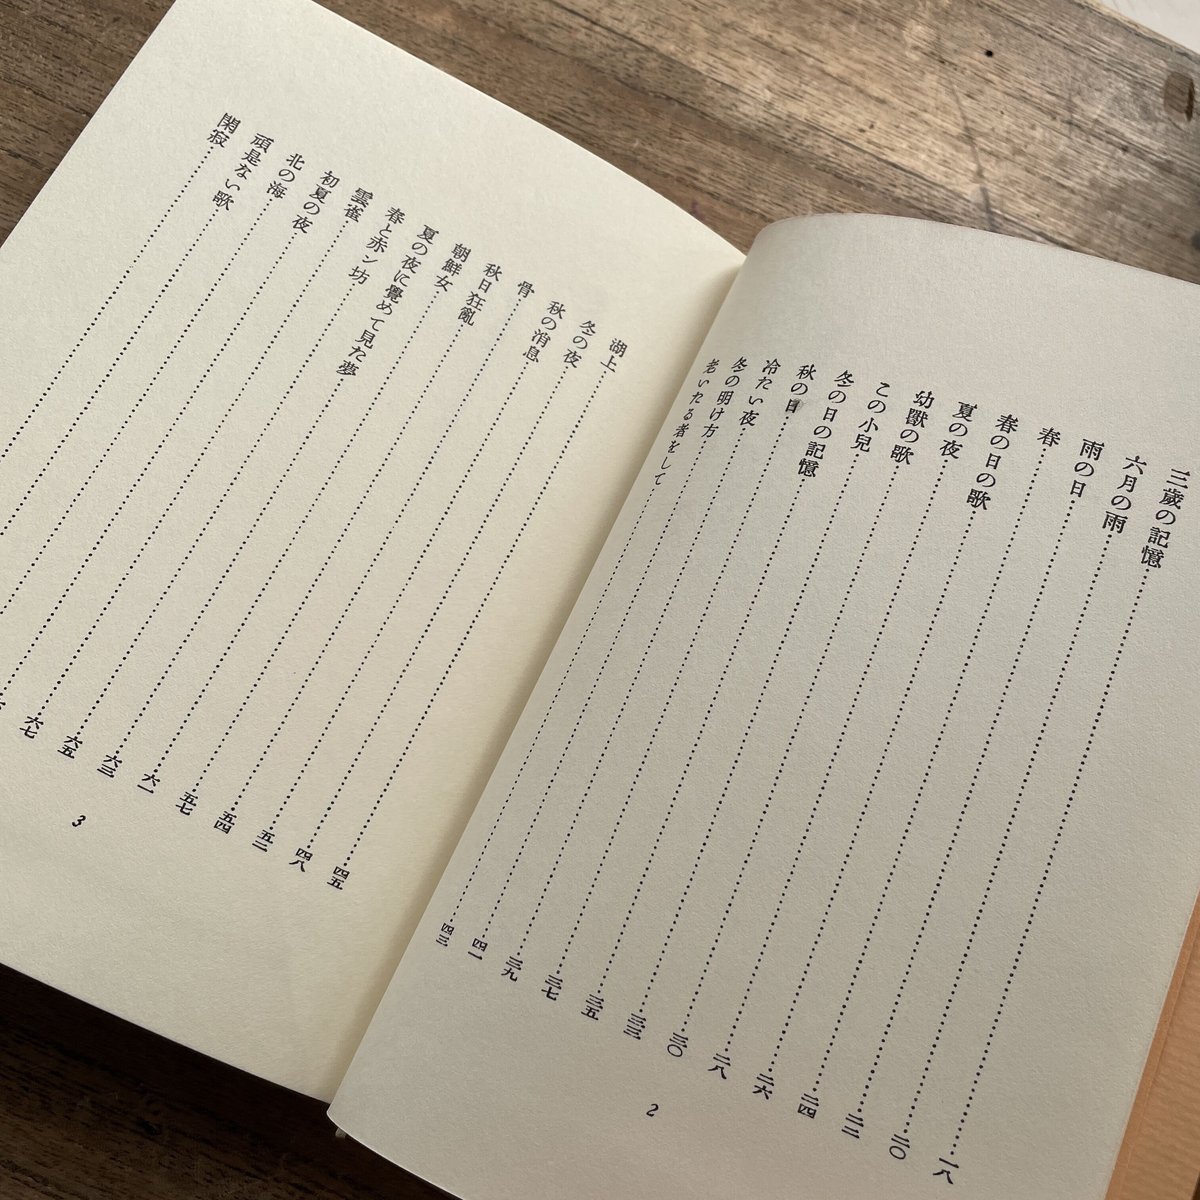 三歲の記憶……一八
六月の雨……二〇
雨の日……二二
春……二四
春の日の歌……二六
夏の夜……二八
幼獸の歌……三〇
この小兒……三三
冬の日の記憶……三五
秋の日……三七
冷たい夜……三九
冬の明け方……四一
老いたる者をして……四三
2
湖上……四五
冬の夜……四八
秋の消息……五二
骨……五四
秋日狂亂……五七
朝鮮女……六一
夏の夜に覺めて見た夢……六三
春と赤ン坊……六五
雲雀……六七
初夏の夜……
北の海……
頑是ない歌……
閑寂……
3